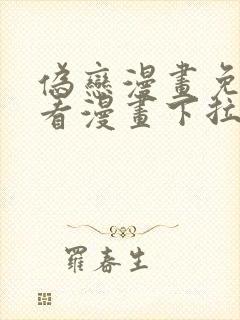 偽戀漫畫免
看漫畫下拉
羅春生